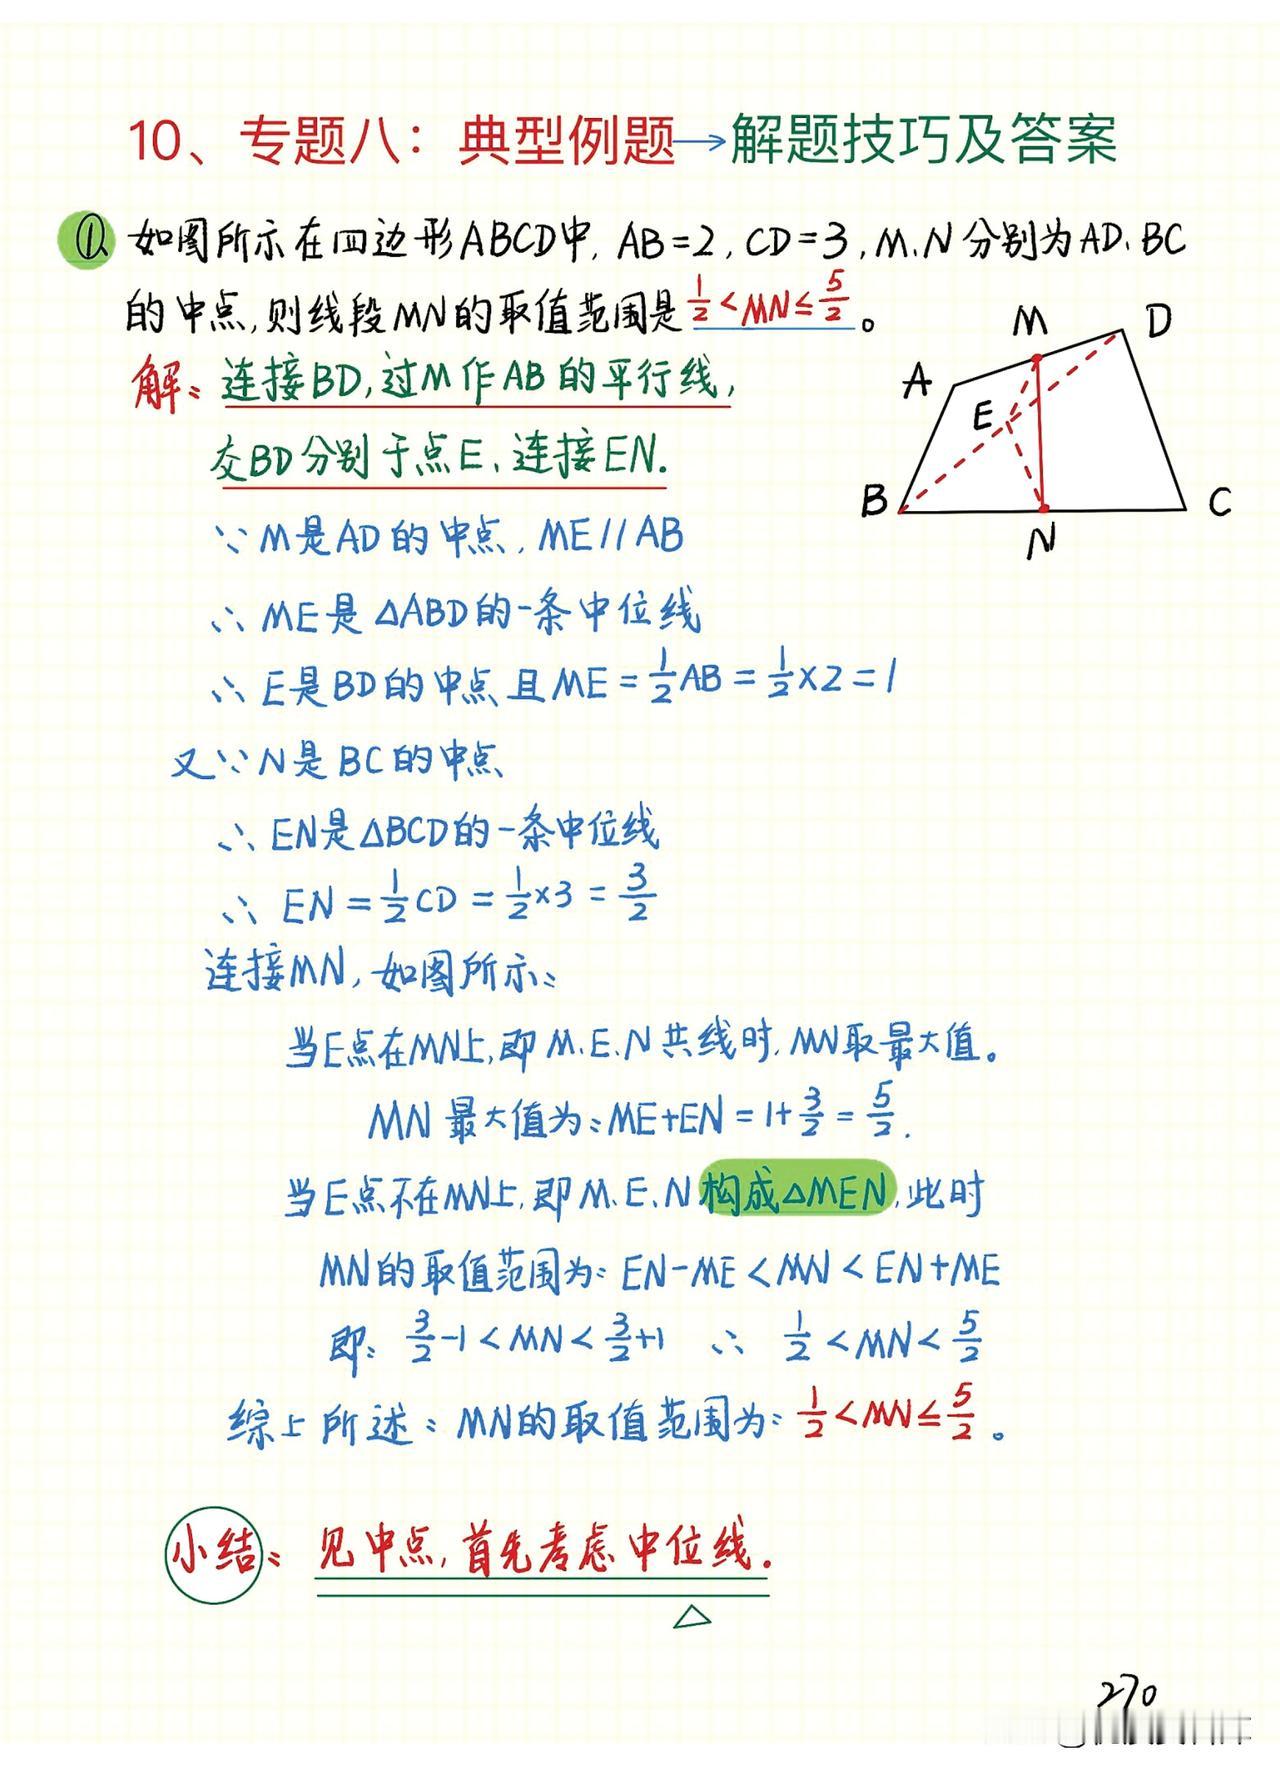 10、专题八：典型例题→解题技巧及答案
①、如图所示在四边形ABCD中, AB=2, CD=3, M、N分别为AD、BC
的中点,则线段MN的取值范围是 1/2<MN≤5/2 。
解: 连接BD,过M作AB的平行线,
交BD分别于点E、连接EN.
∵M是AD的中点, ME//AB
∴ME是△ABD的一条中位线
∴E是BD的中点且ME=1/2AB=1/2×2=1
又∵N是BC的中点
∴EN是△BCD的一条中位线
∴EN=1/2CD=1/2×3=3/2
连接MN,如图所示:
当E点在MN上,即M、E、N共线时,MN取最大值。
MN最大值为:ME+EN=1+3/2=5/2.
当E点不在MN上,即M、E、N构成△MEN,此时
MN的取值范围为:EN-ME<MN<EN+ME
即: 3/2-1<MN<3/2+1 ∴ 1/2<MN<5/2
综上所述:MN的取值范围为: 1/2<MN≤5/2 。
小结: 见中点,首先考虑中位线.
M
D
A
E
B
C
N
270